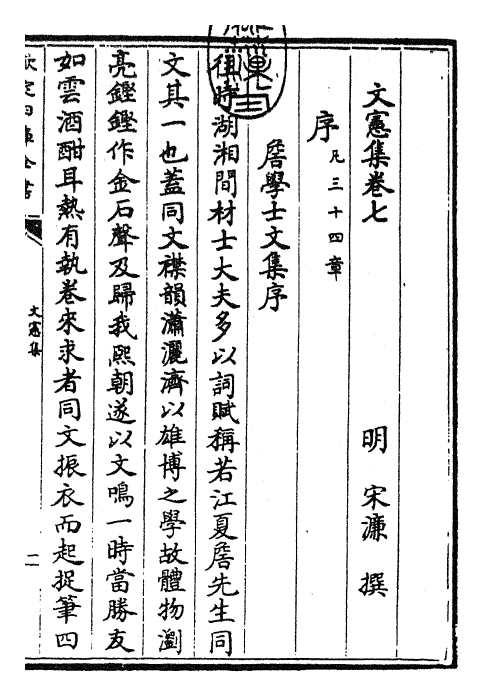 文憲集卷七
明 宋濂 撰
序 凡三十四章
詹學士文集序
往時湖湘間材士大夫多以詞賦稱若江夏詹先生同
文其一也蓋同文襟韻瀟灑濟以雄博之學故體物瀏
亮鏗鏗作金石聲及歸我熙朝遂以文鳴一時當勝友
如雲酒酣耳熱有執卷來求者同文振衣而起捉筆四
欽定四庫全書
文憲集